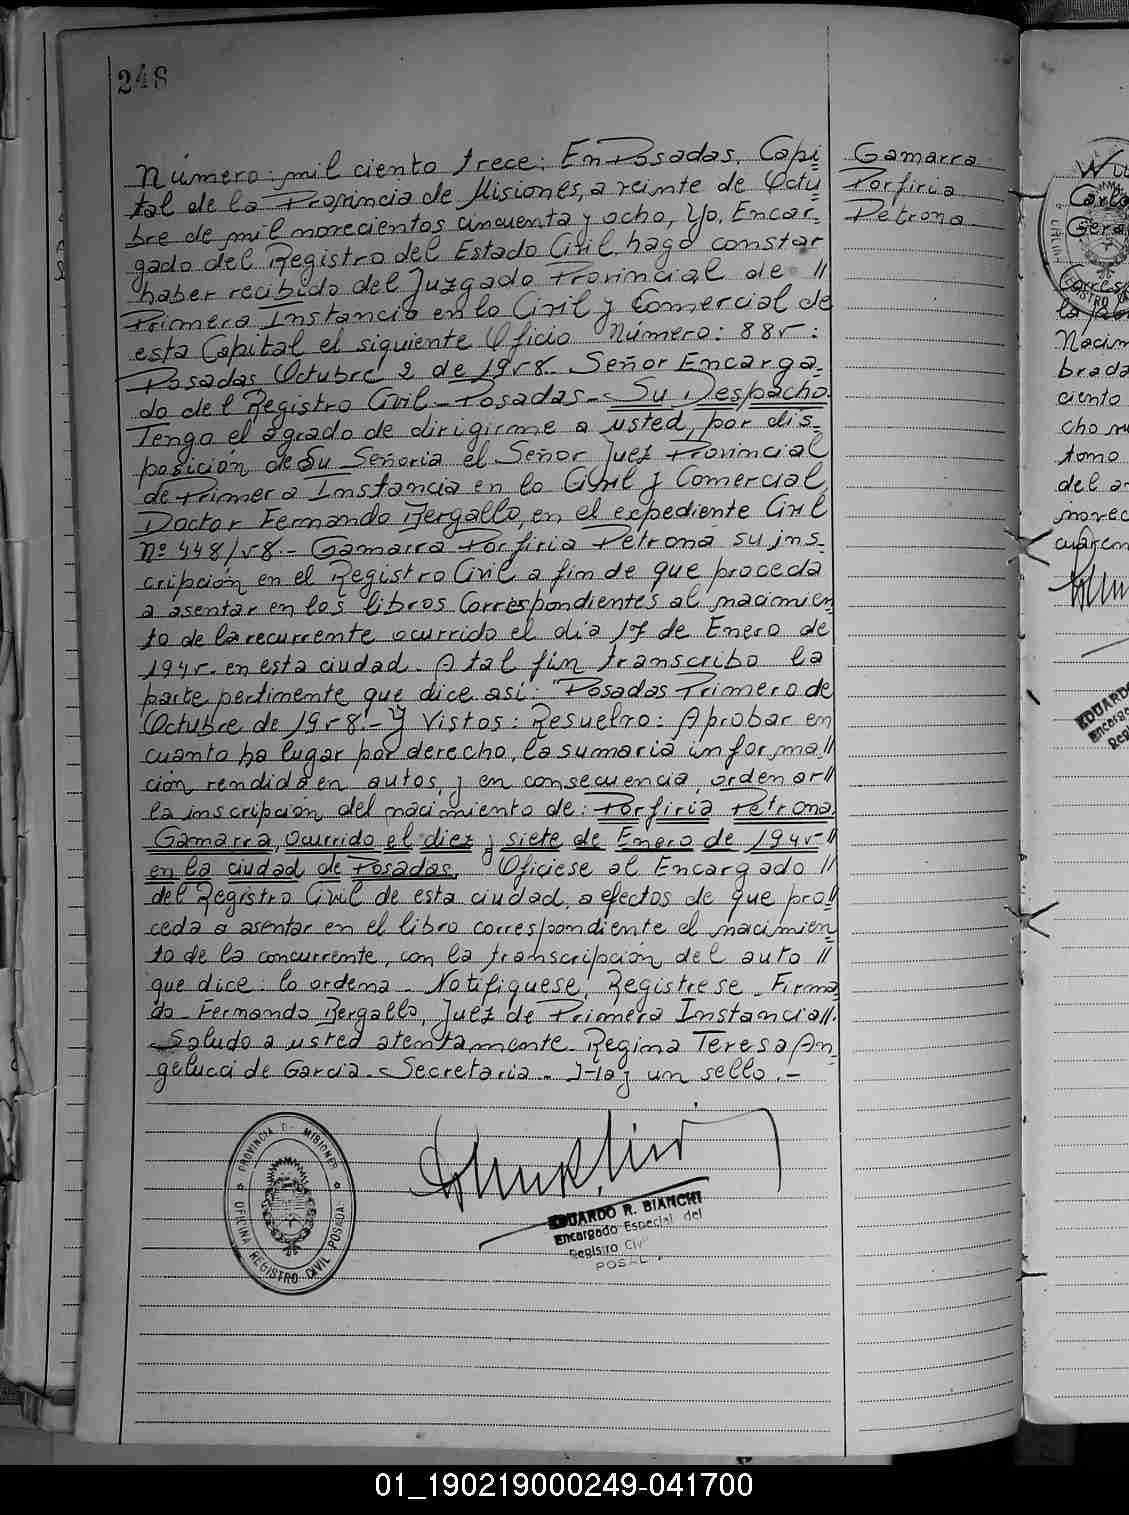 248
Número: mil ciento trece: En Posadas, Capi=
tal de la Provincia de Misiones, a veinte de Octu=
bre de mil novecientos cincuenta y ocho, Yo, Encar=
gado del Registro del Estado Civil, hago constar
haber recibido del Juzgado Provincial de //
Primera Instancia en lo Civil y Comercial de
esta Capital el siguiente Oficio Número: 885:
Posadas Octubre 2 de 1958. Señor Encarga=
do del Registro Civil-Posadas-Su Despacho.
Tengo el agrado de dirigirme a usted, por dis=
posición de Su Señoria el Señor Juez Provincial
de Primera Instancia en lo Civil y Comercial,
Doctor Fernando Bergallo, en el expediente Civil
Nº 448/58.- Gamarra Porfiria Petrona su ins=
cripción en el Registro Civil a fin de que proceda
a asentar en los libros Correspondientes al nacimien=
to de la recurrente ocurrido el dia 17 de Enero de
1945. en esta ciudad. A tal fin transcribo la
parte pertinente que dice asi: "Posadas Primero de
Octubre de 1958.- Y Vistos: Resuelvo: Aprobar en
cuanto ha lugar por derecho, la sumaria informa//
ción rendida en autos, y en consecuencia, ordenar//
la inscripción del nacimiento de: Porfiria Petrona
Gamarra, Ocurrido el diez y siete de Enero de 1945 //
en la ciudad de Posadas. Oficiese al Encargado //
del Registro Civil de esta ciudad, a efectos de que pro//
ceda a asentar en el libro correspondiente el nacimien=
to de la concurrente, con la transcripción del auto //
que dice: lo ordena. Notifiquese, Registrese. Firma=
do- Fernando Bergallo, Juez de Primera Instancia//.
Saludo a usted atentamente. Regina Teresa An=
gelucci de Garcia. Secretaria. Hay un sello.-
Gamarra
Porfiria
Petrona
PROVINCIA DE MISIONES
OFICINA REGISTRO CIVIL POSADAS
EDUARDO R. BIANCHI
Encargado Especial del
Registro Civil
POSADAS
Carlo
Gera
Corresp
la
Nacim
brada
ciento
cho
tomo
del
novec
cuaren
EDUARDO
Encargado
Regi
01_190219000249-041700